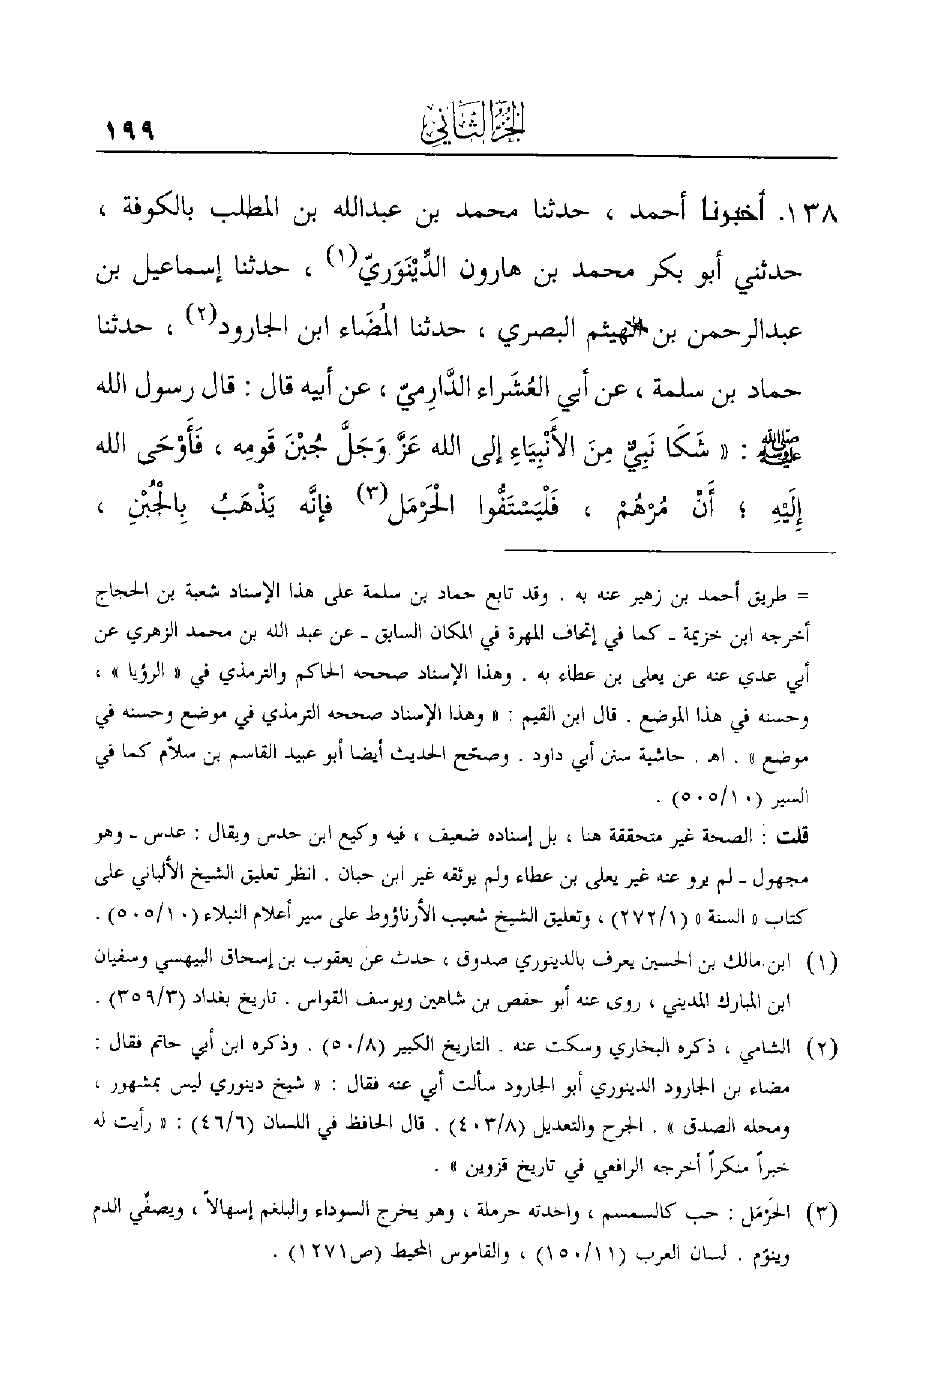 الجزء الثاني ١٩٩
١٣٨. أخبرنا أحمد ، حدثنا محمد بن عبدالله بن المطلب بالكوفة ،
حدثني أبو بكر محمد بن هارون الدِّيْنَوَريّ(١) ، حدثنا إسماعيل بن
عبدالرحمن بن الهيثم البصري ، حدثنا المُضَاء ابن الجارود(٢) ، حدثنا
حماد بن سلمة ، عن أبي العُشَراء الدَّارِميّ ، عن أبيه قال : قال رسول الله
ﷺ : « شَكَا نَبِيٌّ مِنَ الأَنْبِيَاءِ إلى الله عَزَّ وَجَلَّ جُبْنَ قَومِه ، فَأَوْحَى الله
إِلَيْهِ ؛ أَنْ مُرْهُمْ ، فَلْيَسْتَفُّوا الحَرْمَل(٣) فإنَّه يَذْهَبُ بِالجُبْنِ ،
= طريق أحمد بن زهير عنه به . وقد تابع حماد بن سلمة على هذا الإسناد شعبة بن الحجاج
أخرجه ابن خزيمة ـ كما في إتحاف المهرة في المكان السابق ـ عن عبد الله بن محمد الزهري عن
أبي عدي عنه عن يعلى بن عطاء به . وهذا الإسناد صححه الحاكم والترمذي في « الرؤيا » ،
وحسنه في هذا الموضع . قال ابن القيم : « وهذا الإسناد صححه الترمذي في موضع وحسنه في
موضع » . اهـ . حاشية سنن أبي داود . وصحّح الحديث أيضا أبو عبيد القاسم بن سلاّم كما في
السير (٥٠٥/١٠) .
قلت : الصحة غير متحققة هنا ، بل إسناده ضعيف ، فيه وكيع ابن حدس ويقال : عدس ـ وهو
مجهول ـ لم يرو عنه غير يعلى بن عطاء ولم يوثقه غير ابن حبان . انظر تعليق الشيخ الألباني على
كتاب « السنة » (٢٧٢/١) ، وتعليق الشيخ شعيب الأرناؤوط على سير أعلام النبلاء (٥٠٥/١٠) .
(١) ابن مالك بن الحسين يعرف بالدينوري صدوق ، حدث عن يعقوب بن إسحاق البيهسي وسفيان
ابن المبارك المديني ، روى عنه أبو حفص بن شاهين ويوسف القواس . تاريخ بغداد (٣٥٩/٣) .
(٢) الشامي ، ذكره البخاري وسكت عنه . التاريخ الكبير (٥٠/٨) . وذكره ابن أبي حاتم فقال :
مضاء بن الجارود الدينوري أبو الجارود سألت أبي عنه فقال : « شيخ دينوري ليس بمشهور ،
ومحله الصدق » . الجرح والتعديل (٤٠٣/٨) . قال الحافظ في اللسان (٤٦/٦) : « رأيت له
خبراً منكراً أخرجه الرافعي في تاريخ قزوين » .
(٣) الحَرْمَل : حب كالسمسم ، واحدته حرملة ، وهو يخرج السوداء والبلغم إسهالاً ، ويصفّي الدم
وينوّم . لسان العرب (١٥٠/١١) ، والقاموس المحيط (ص١٢٧١) .